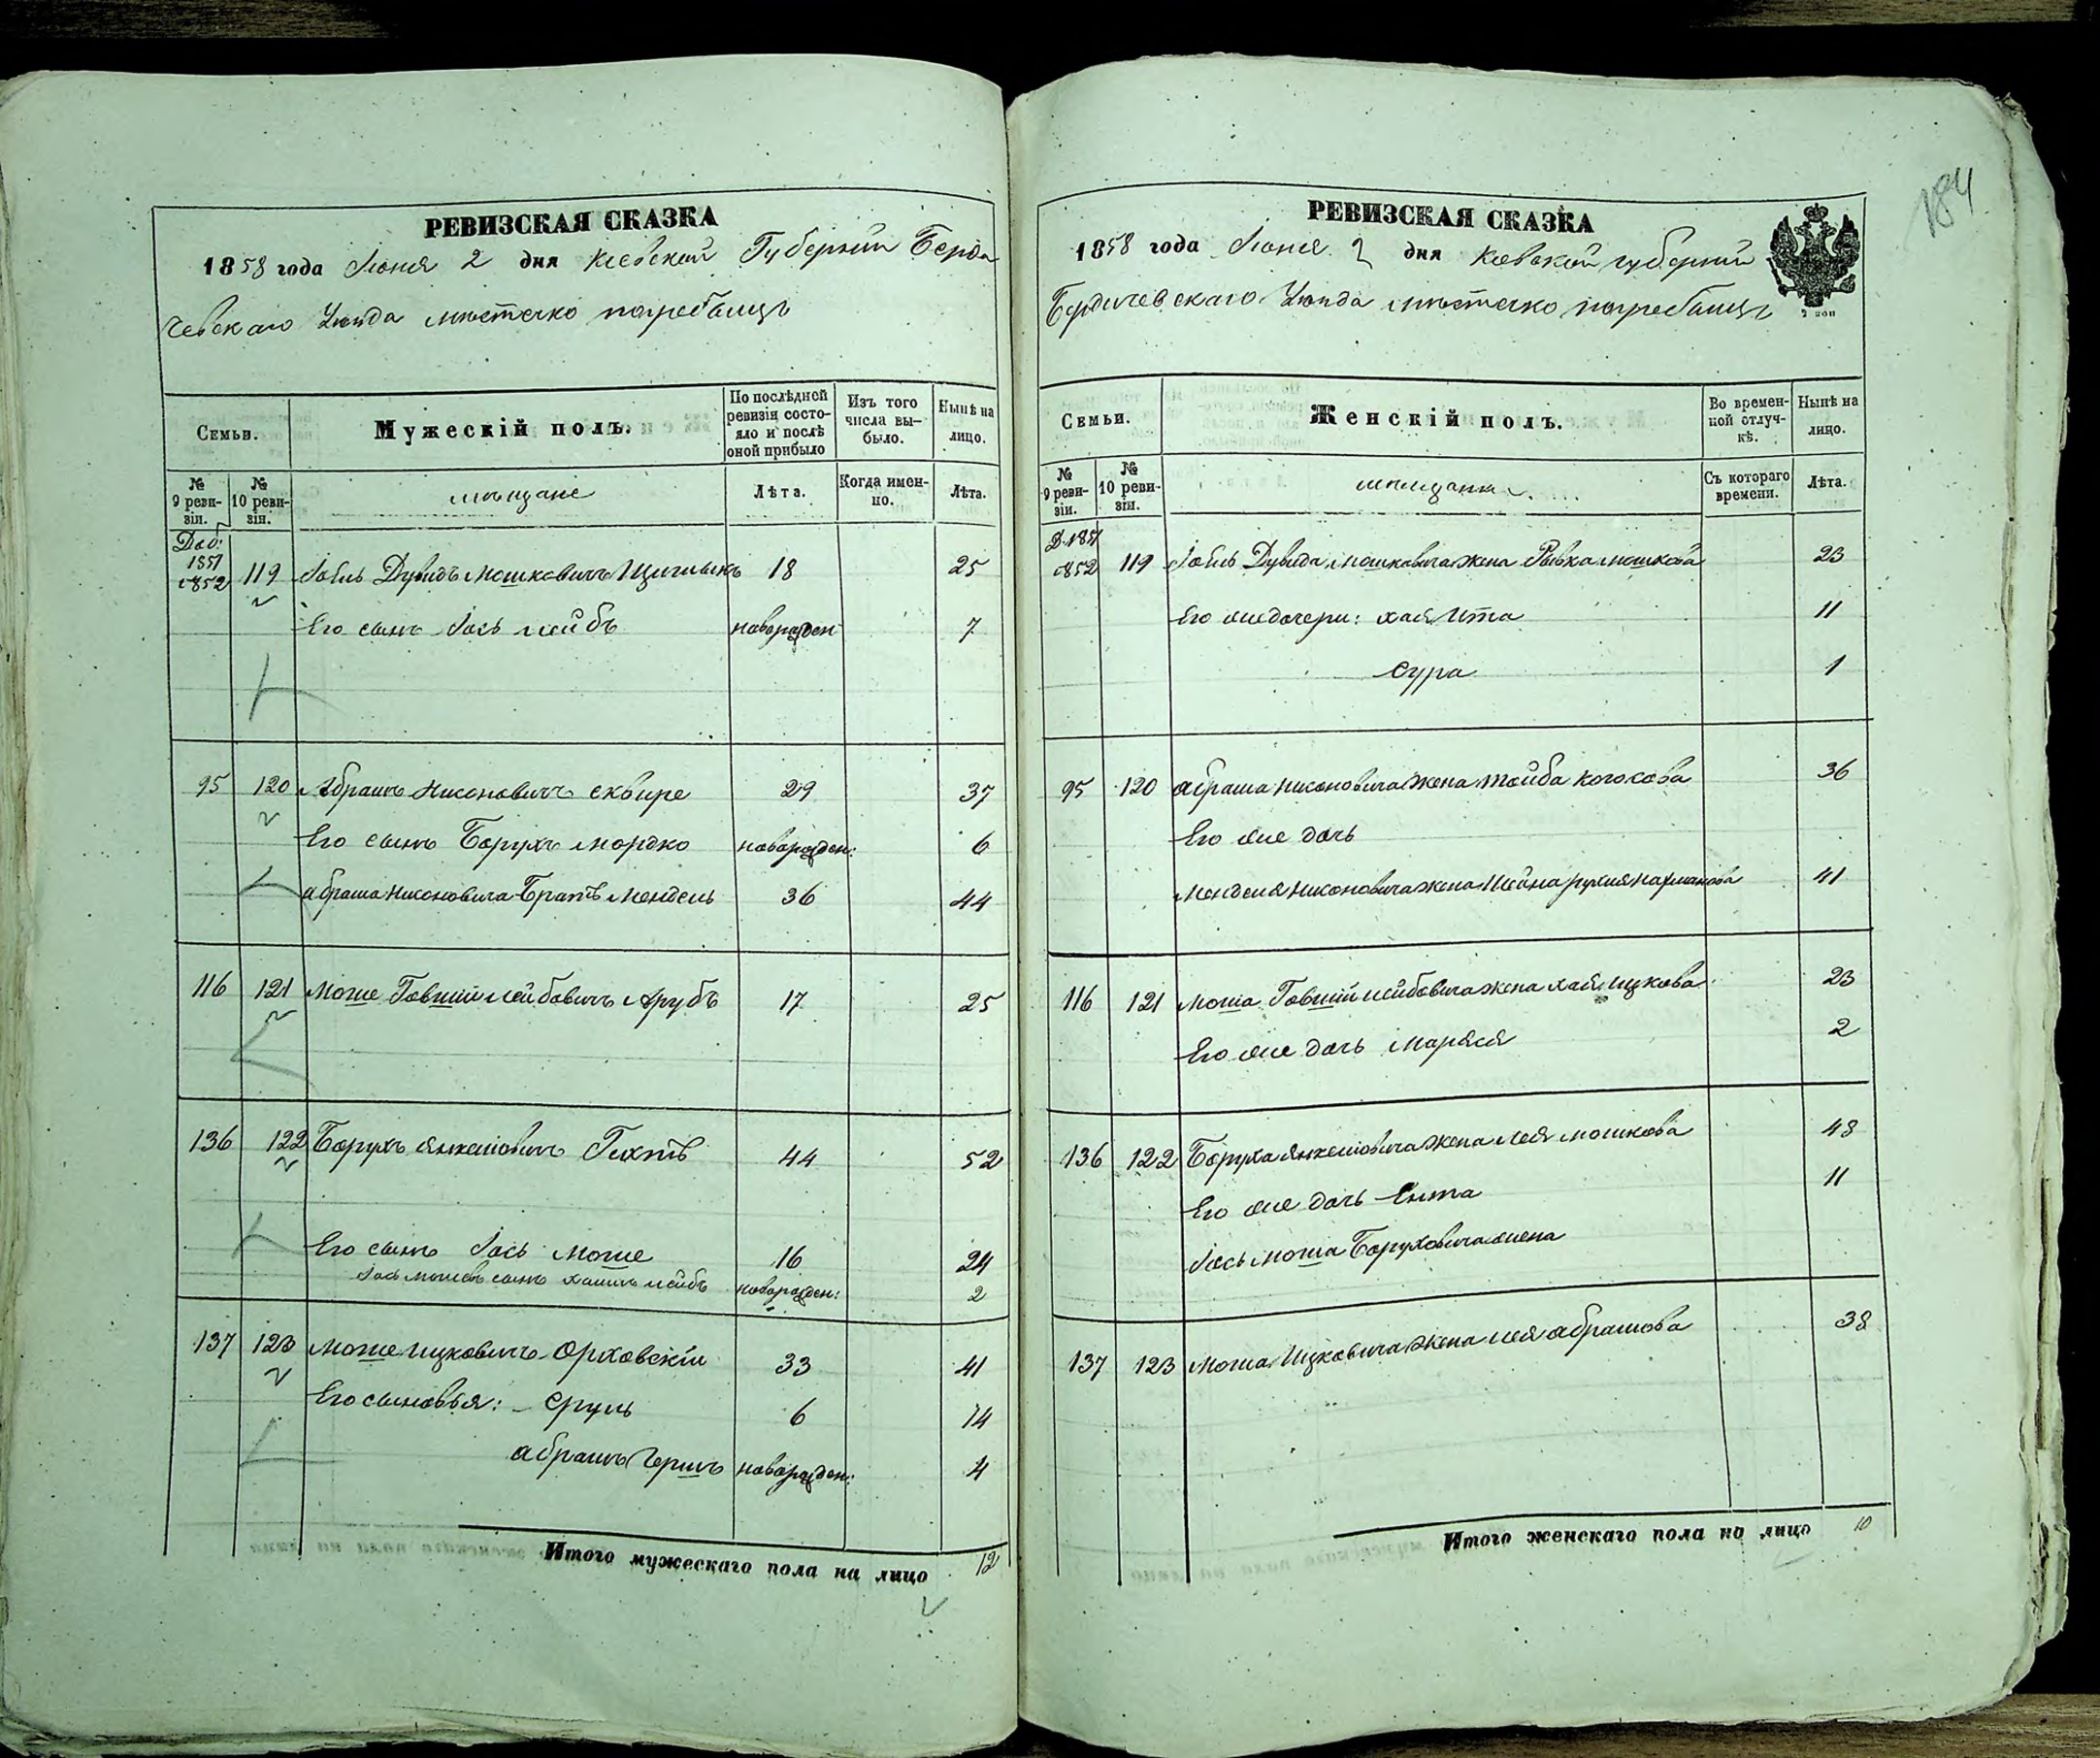 РЕВИЗСКАЯ СКАЗКА
1858 года Июня 2 дня Киевской Губернии Берди
чевскаго Уѣзда мѣстечко погребищъ
Семьи.
Мужескій полъ.
По послѣдней ревизіи состояло и послѣ оной прибыло
Изъ того числа выбыло.
Нынѣ на лицо.
№ 9 ревизіи.
№ 10 ревизіи.
мѣщане
Лѣта.
Когда именно.
Лѣта.
Доп: 1851 1852 119 Іовль Дувидъ Мошковичъ 18 25
Его сынъ Іось лейбъ новорожден 7
95 120 Абрамъ Нисоновичъ сквире 29 37
Его сынъ Борухъ мордко новорожден: 6
абрама Нисоновича Братъ мендель 36 44
116 121 Моше Говшій лейбовичъ 17 25
136 122 Борухъ Янкелiовичъ Гихтъ 44 52
Его сынъ Іось Моше 16 24
Іось сынъ хаимъ лейбъ новорожден: 2
137 123 Моше ицковичъ Орховскій 33 41
Его сыновья: Сруль 6 14
абрамъ Гершъ новорожден: 4
Итого мужескаго пола на лицо 12
184
РЕВИЗСКАЯ СКАЗКА
1858 года Июня 2 дня Киевской губернии
Бердичевскаго Уѣзда мѣстечко погребищъ
Семьи.
Женскій полъ.
Во временной отлучкѣ.
Нынѣ на лицо.
№ 9 ревизіи.
№ 10 ревизіи.
мѣщанки
Съ котораго времени.
Лѣта.
Д. 1851 1852 119 Іовль Дувида мошковича жена Рывка мошкова 23
Его же дочери: хая Ита 11
сура 1
95 120 абрама нисоновича жена тойба 36
Его же дочь
менделя Нисоновича жена Шейна рухля нахманова 41
116 121 Моша Говшій лейбовича жена хая ицкова 23
Его же дочь Маряся 2
136 122 Боруха янкелiовича жена лея мошкова 48
Его же дочь Ента 11
Іось Моша Боруховича жена
137 123 Моша Ицковича жена лея абрамова 38
Итого женскаго пола на лицо 10